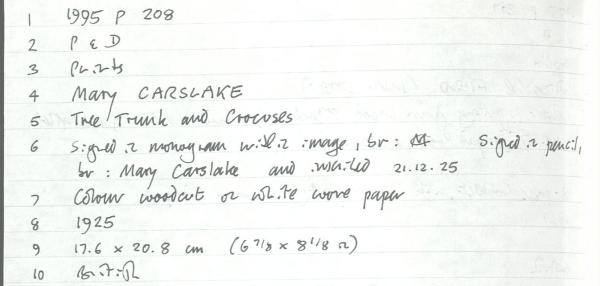 1 1995 P 208
2 P & D
3 Prints
4 Mary CARSLAKE
5 Tree Trunk and Crocuses
6 Signed in monogram within image, br: Signed in pencil,
br: Mary Carslake and 21.12.25
7 Colour woodcut on white wove paper
8 1925
9 17.6 x 20.8 cm (6 7/8 x 8 1/8 in)
10 British